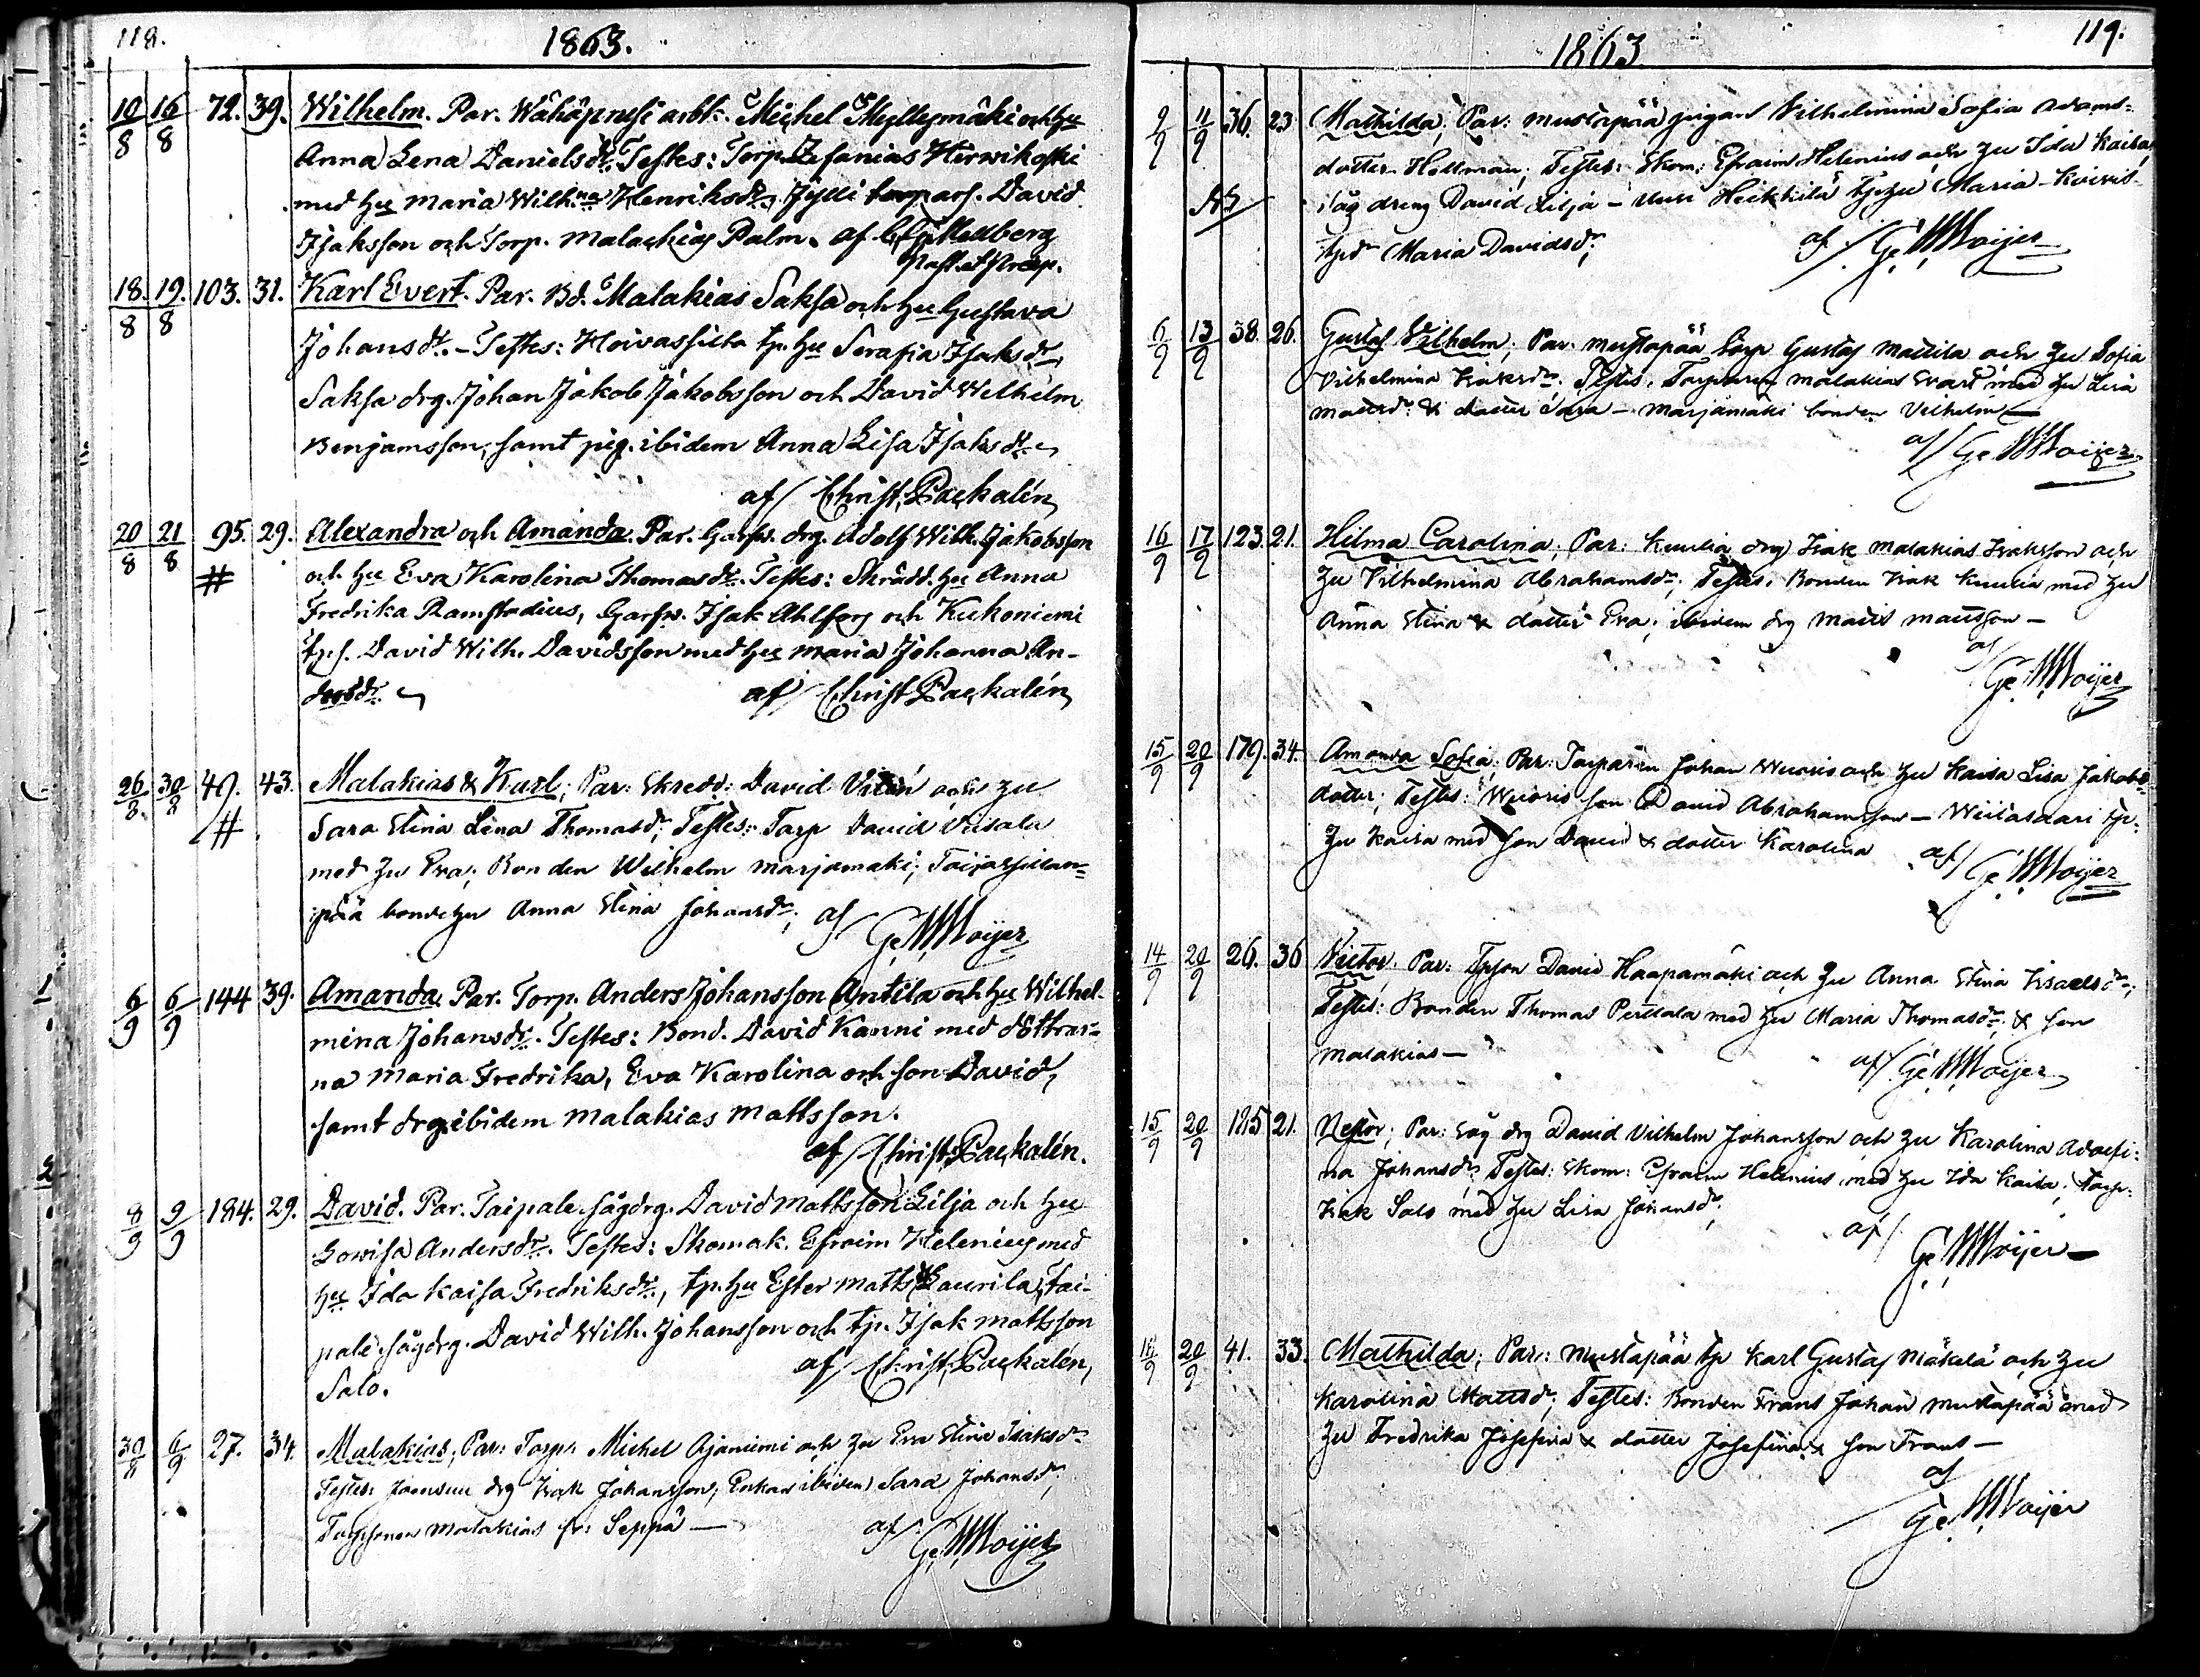 118.
1863.
10/8 16/8 72. 39. Wilhelm. Par. Wähäpruysi arbk. Michel Myllymäki och hu
Anna Lena Danielsdr. Testes: Torp. Zefanias Hirwikoski
med hu Maria Wilh:na Henriksdr, Jylli torpars. David
Isaksson och Torp. Malackias Palm. af C.
18./8 19./8 103. 31. Karl Evert. Par. Bd. Malakias Saksa och hu Gustava
Johansdr. – Testes: Hoivassilta tp. hu Serafia Isaksdr,
Saksa drg. Johan Jakob Jakobsson och David Wilhelm
Benjamsson, samt pig. ibidem Anna Lisa Isaksdr.
af/ Christ. Packalén,
20/8 21/8 95. 29. Alexandra och Amanda. Par. Garfv. drg. Adolf Wilh. Jakobsson
# och hu Eva Karolina Thomasdr. Testes: Skrädd. hu Anna
Fredrika Ramstadius, Garfv. Isak Ahlforg och Kukoniemi
tp.s. David Wilh. Davidsson med hu Maria Johanna An-
dersdr. af/ Christ Packalén,
26/8. 30/8 49. 43. Malakias & Karl; Par: Skredd: David Vitén och hu
# Sara Stina Lena Thomasdr; Testes: Torp David Uusala
med hu Eva; Bonden Wilhelm Marjamäki; Taijassillan=
pää bondehu Anna Stina Johansdr; af
G. W. Moijer
6/9 6/9 144 39. Amanda. Par. Torp. Anders Johansson Antila och hu Wilhel-
mina Johansdr. Testes: Bond. David Kanni med döttrar=
na Maria Fredrika, Eva Karolina och son David,
samt drg. ibidem Malakias Mattsson.
af/ Christ. Packalén.
8/9 9/9 184. 29. David. Par. Taipale sågdrg. David Mattsson Lilja och hu
Lowisa Andersdr. Testes: Skomak. Efraim Helenius med
hu Ida Kaisa Fredriksdr., tp. hu Ester Matts Laurila, Tai-
pale sågdrg. David Wilh. Johansson och tp. Isak Mattsson
Salo. af/ Christ. Packalén,
30/8 6/9 27. 34. Malakias; Par: Torp: Michel Ajaniemi och hu Eva Stina Isaksdr
Testes: drg Isak Johansson; Enkan ibidem Sara Johansdr;
Torpsonen Malakias fr: Seppä — af/
G. W. Moijer
119.
1863
9/9 11/9 36. 23 Mathilda; Par: Mustapää pigan Vilhelmina Sofia Adams=
dotter Hellman; Testes: Skom: Efraim Helenius och hu Ida Kaisa;
såg dreng David Lilja – Uusi Heikkilä tp hu Maria –
tpdr Maria Davidsdr; af/ G. W. Moijer
6/9 13/9 38. 26. Gustaf Vilhelm; Par: Mustapää torp Gustaf Mattila och hu Sofia
Vilhelmina Isaksdr. Testes. Torparen Malakias Svart med hu Lisa
Mattsdr. & dotter Sara – Marjamäki bonden Vilhelm —
af/ G. W. Moijer
16/9 17/9 123. 21. Hilma Carolina; Par: Kuulia drg Isak Malakias Isaksson och
hu Vilhelmina Abrahamsdr; Testes: Bonden Isak Kuulia med hu
Anna Stina & dotter Eva; ibidem drg Matts Mattsson –
af/
G. W. Moijer
15/9 20/9 179. 34. Amanda Sofia; Par: Torparen Johan Wuoris och hu Kaisa Lisa Jakobs=
dotter; Testes: Wuoris son David Abrahamsson – Wiitasaari tp:
hu Kaisa med son David & dotter Karolina af/ G. W. Moijer
14/9 20/9 26. 36 Victor. Par: Tpson David Haapamäki och hu Anna Stina Isaelsdr;
Testes: Bonden Thomas Perttala med hu Maria Thomasdr. & son
Malakias – af/ G. W. Moijer
15/9 20/9 185 21. Nestor; Par: Såg drg David Vilhelm Johansson och hu Karolina Adolfi:
na Johansdr; Testes: Skom: Efraim Helenius med hu Ida Kaisa; Torp:
Isak Salo med hu Lisa Johansdr; af/
G. W. Moijer —
16/9 20/9 41. 33. Mathilda; Par: Mustapää tp Karl Gustaf Mäkelä och hu
Karolina Mattsdr; Testes: Bonden Frans Johan Mustapää med
hu Fredrika Josefina & dotter Josefina & son Frans —
af
G. W. Moijer